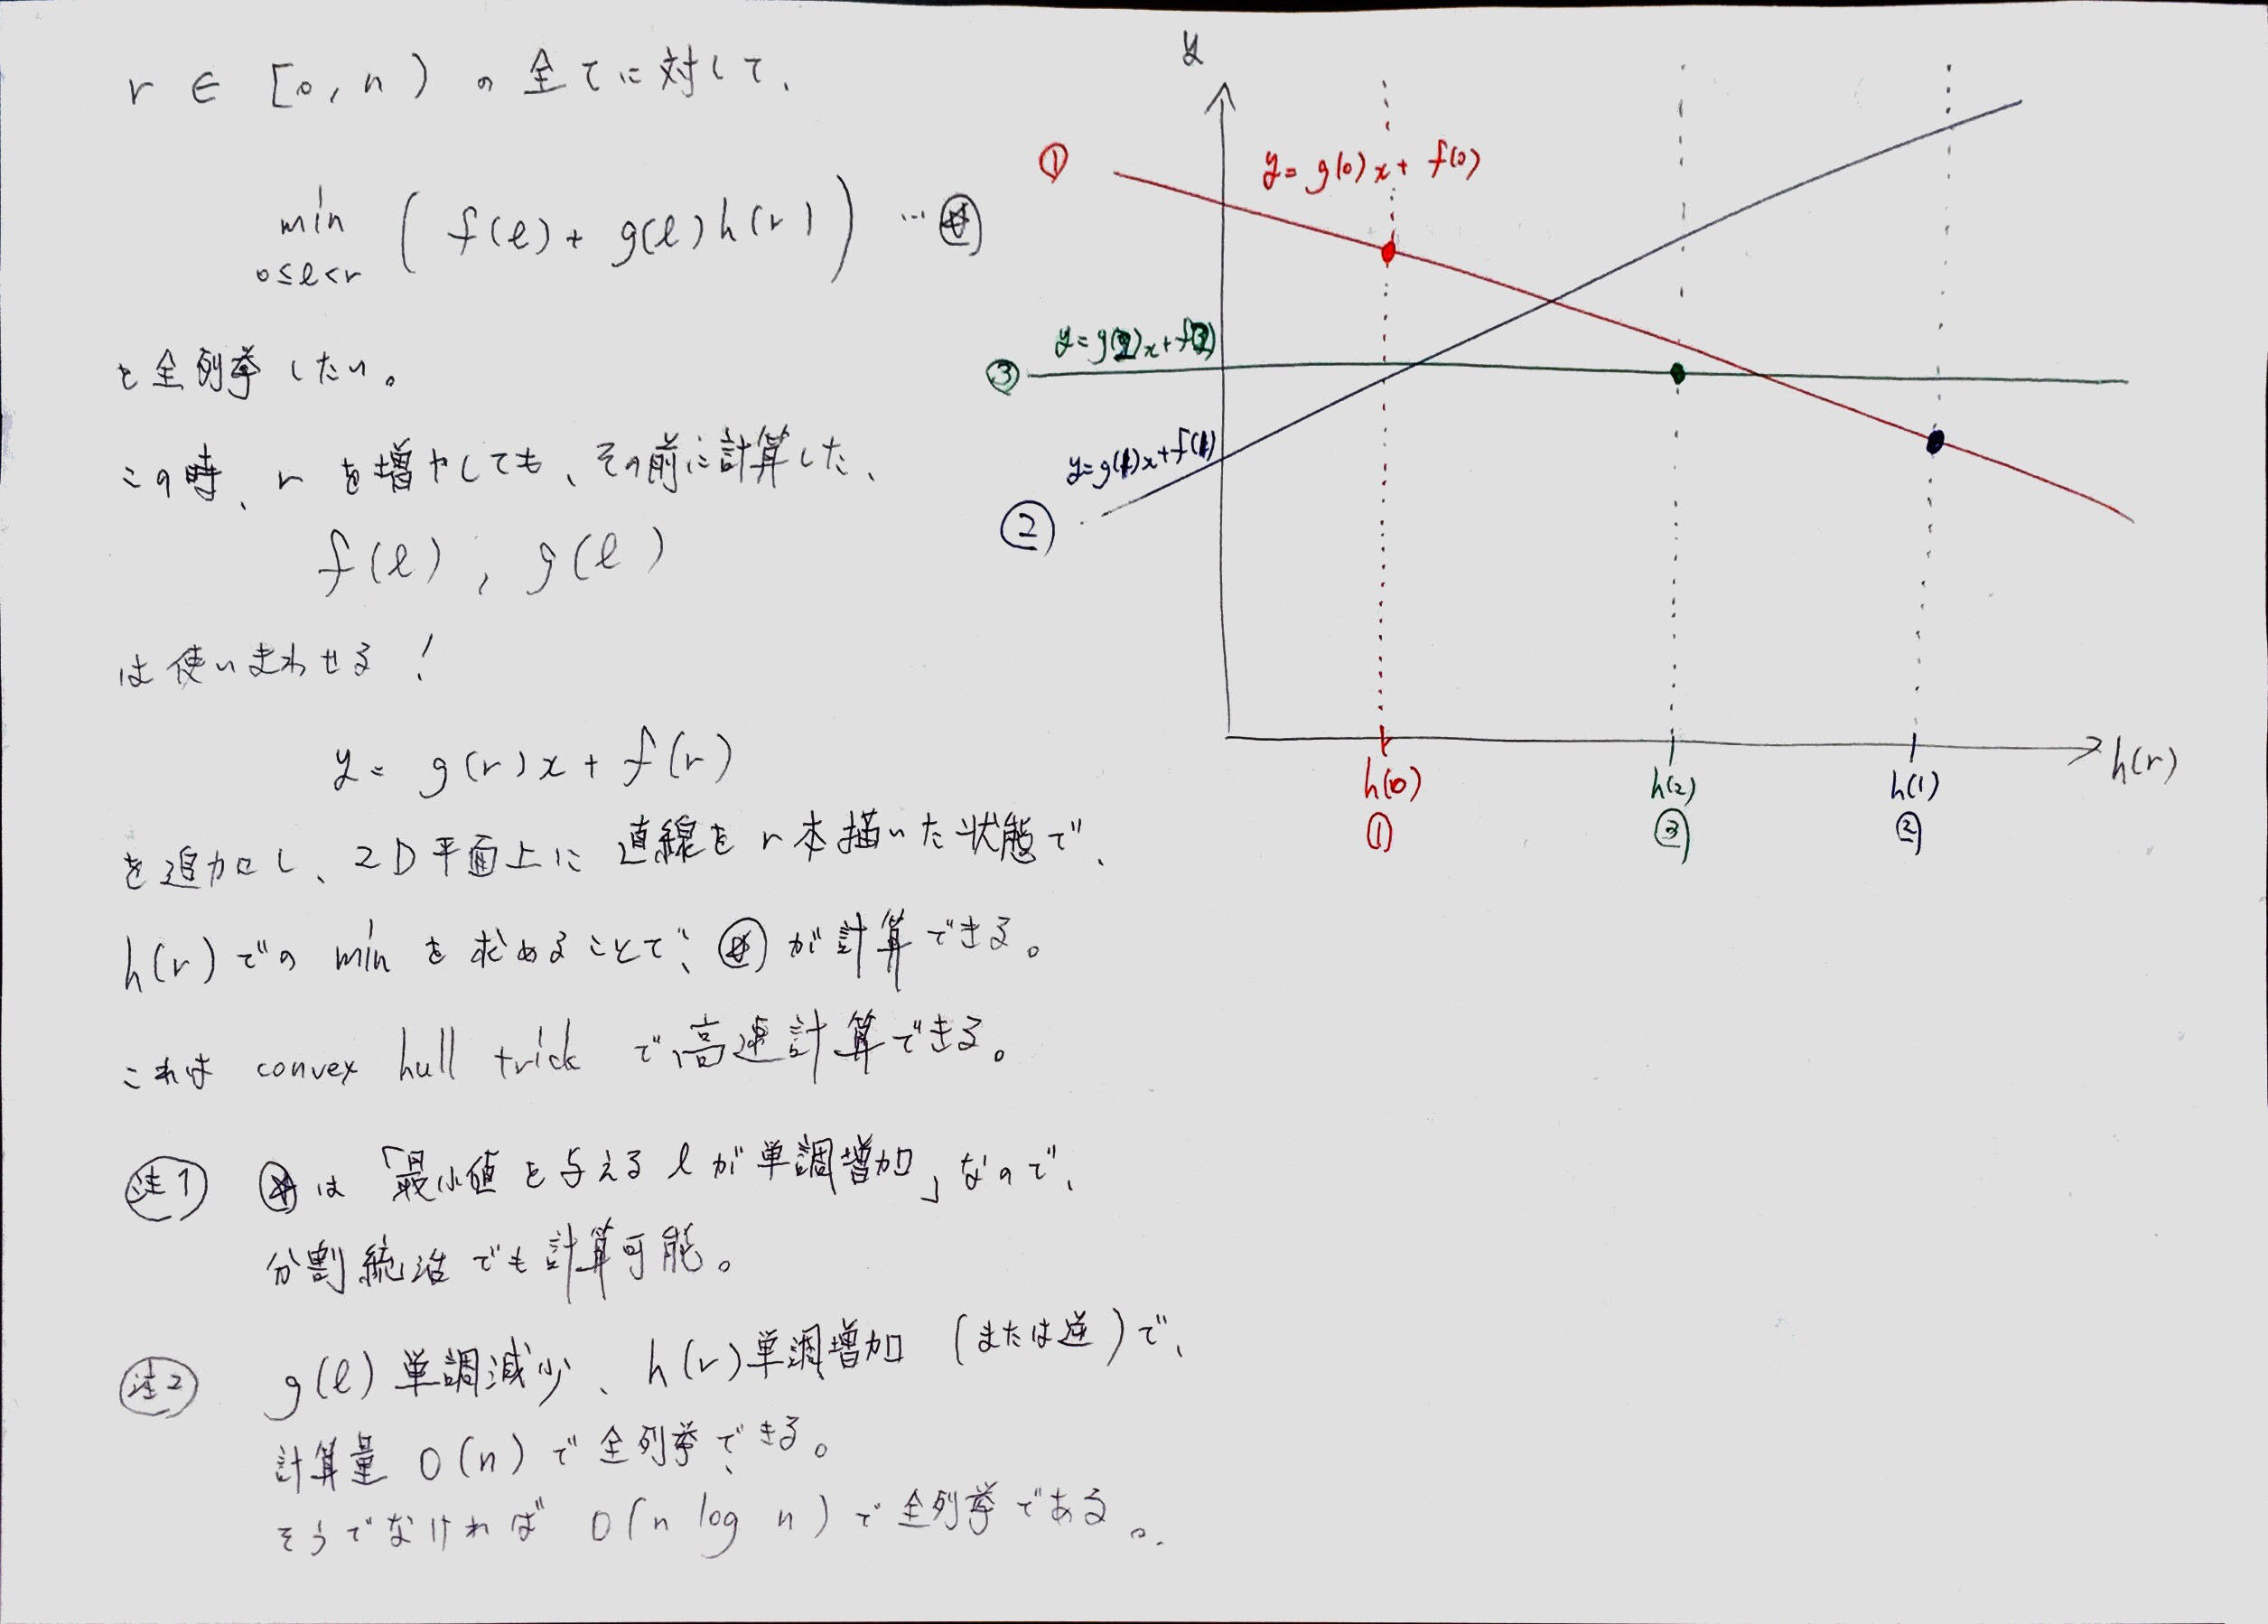 r ∈ [0, n) の全てに対して、
min ( f(ℓ) + g(ℓ) h(r) ) … ☆
0≤ℓ<r
を全列挙したい。
この時、r を増やしても、その前に計算した、
f(ℓ), g(ℓ)
は使いまわせる!
y = g(r)x + f(r)
を追加し、2D平面上に直線をr本描いた状態で、
h(r)でのminを求めることで、☆が計算できる。
これは convex hull trick で高速計算できる。
注1 ☆は「最小値を与えるℓが単調増加」なので、
分割統治でも計算可能。
注2 g(ℓ)単調減少、h(r)単調増加(または逆)で、
計算量 O(n) で全列挙できる。
そうでなければ O(n log n) で全列挙である。
y
① y = g(0)x + f(0)
y = g(2)x + f(2)
③
y = g(1)x + f(1)
②
h(0) h(2) h(1) h(r)
① ③ ②